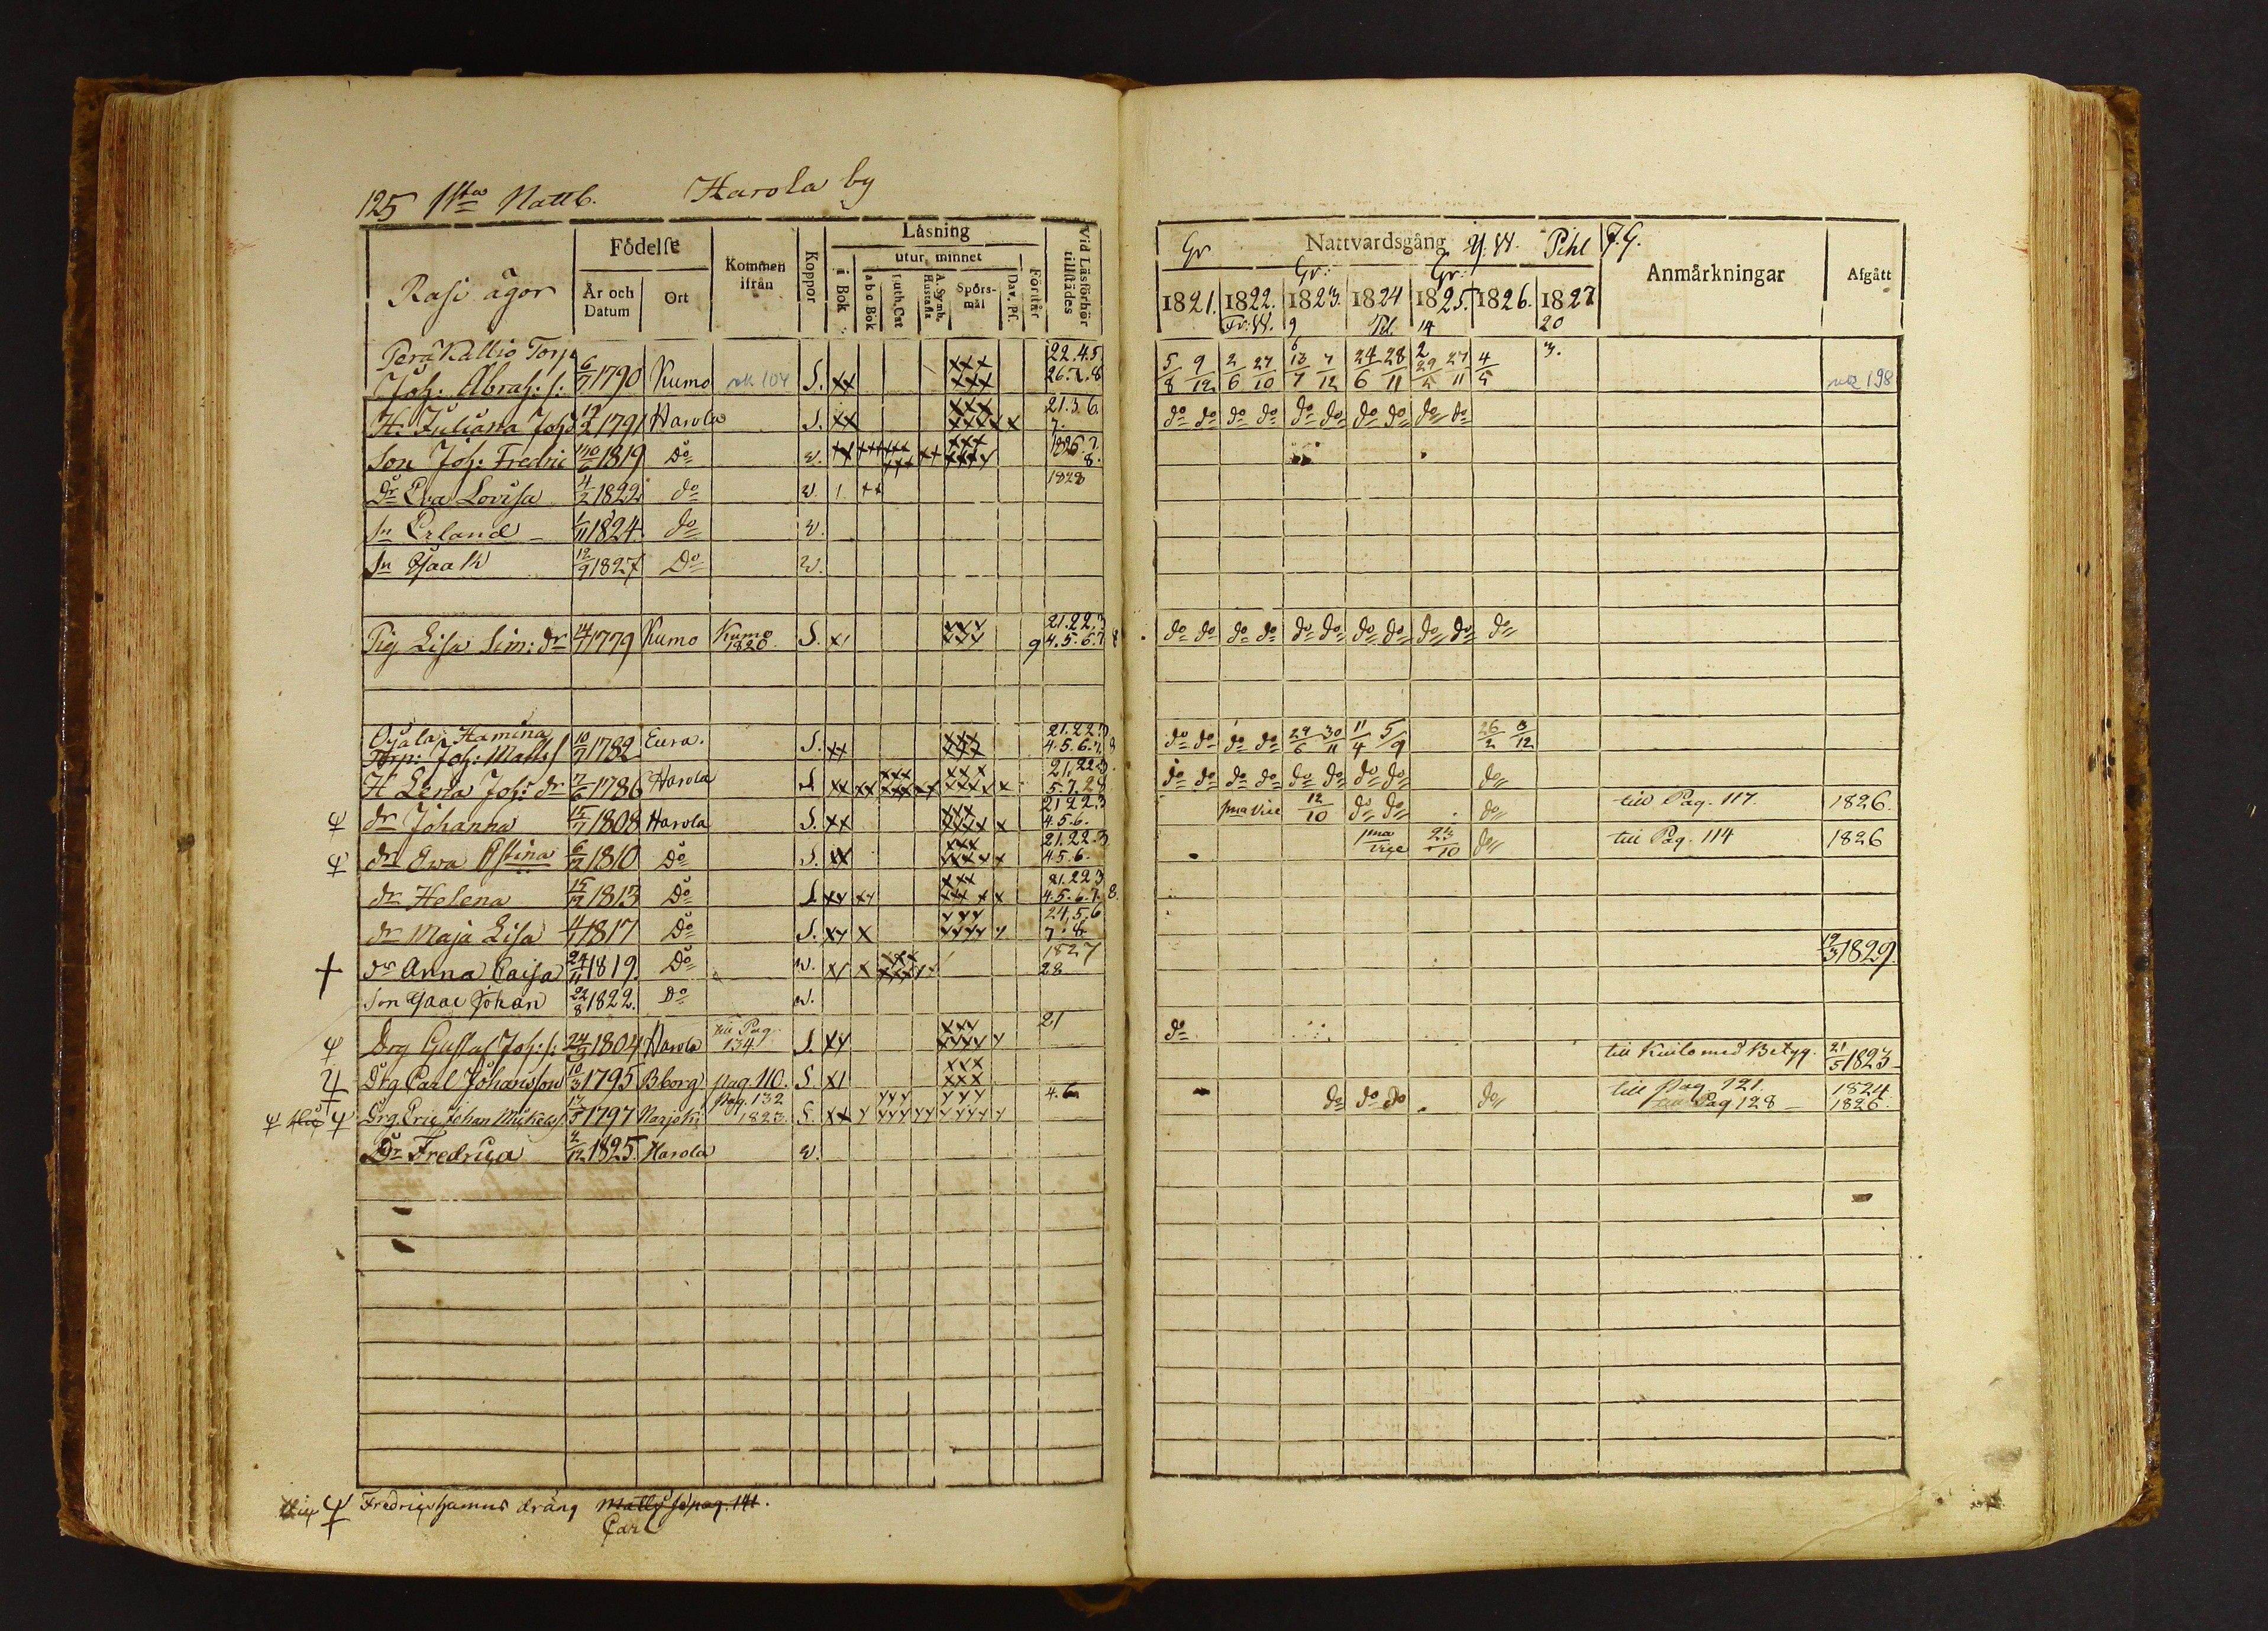 125 1sta Nattb. Harola by
Rasi ägor
Födelse
År och Datum
Ort
Kommen ifrån
Koppor
Låsning
i Bok
utur minnet
a b c Bok
Luth. Cat
A. Symb. Hustafla
Spörs-mål
Dav. Ps.
Förstår
Vid Läsförhör tillstädes
Gr Nattvardsgång Pihl F. G.
Gr: Gr:
1821. 1822. 1823. 1824 1825. 1826. 1827
Anmårkningar
Afgått
9 14 20
Perä Kallio Torp
Joh: Abrah: s: 6/7 1790 Kumo 104 S. xx xxx xxx 22.4.5 26.7.8 5/8 9/12 2/6 27/10 13/7 7/12 24/6 28/11 29/5 27/11 4/5 3. 198
H. Juliana Joh 1791 Harola S. xx xxx xxxxx 21.3.6. 7. do do do do do do do do do do
Son Joh: Fredric 1819 Do w. xx xxx xxx xxx xx xxx xxxx 1826.7. 8.
Dr Eva Lovisa 4/2 1822 do w. 1 xx 1828
Sn Erland 1/11 1824 do w.
Sn Isaak 12/9 1827 Do w.
Pig Lisa Sim: dr 1779 Kumo Kumo 1820. S. x1 xxx xxx 9 21.22.3 4.5.6.7 8 do do do do do do do do do do do
Ojala, Hamina
Torp: Joh: Matts s 10/7 1782 Eura. S. xx xxx xxx 21.22.3 4.5.6.7. 8 do do do do 29/6 30/11 11/4 5/9 26/2 3/12
H Lena Joh: dr 7/6 1786 Harola S xx xx xxx xxx xx xxx xxxxx 21.22.3. 5.7.28 do do do do do do do do do
dr Johanna 15/7 1808 Harola S. xx xxx xxxxx 21 22.3 4.5.6. pma vice 12/10 do do do till Pag. 117. 1826.
dr Ewa Stina 6/12 1810 Do S. xx xxx xxxxx 21.22.3 4.5.6. 1ma vice 23/10 do till Pag. 114 1826
dr Helena 15/12 1813 Do S xx xx xxx xxx xx 21.22 3 4.5.6.7. 8.
dr Maja Lisa 1817 Do S. xx x xxx xxxx x 24.5.6 7.8
dr Anna Caisa 24/11 1819. Do w. x1 x xxx xxx 1827 28 19/3 1829.
Son Isaac Johan 22/8 1822. Do w.
Drg Gustaf Joh: s: 1804 Harola till Pag 134 S. xx xxx xxxxx 21 do till Kiulo med Betyg. 21/5 1823
Drg Carl Johansson 10/3 1795 Bborg pag. 110. S x1 xxx xxx till pag. 121. 1824
Drg. Eric Johan Mickels s. 1797 Norjoki Pag. 132 1823. S. xx x xxx xxx xx xxx xxxx 4.6 do do do do till Pag 128 1826.
Dr Fredrica 2/12 1825. Harola w.
Fredricshamns dräng Matts pag. 141.
Carl